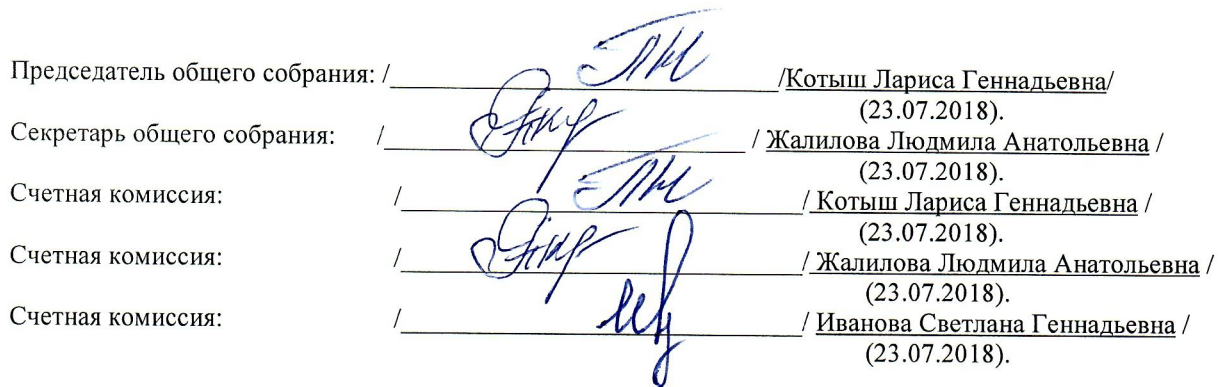 Председатель общего собрания: /__________/Котыш Лариса Геннадьевна/
(23.07.2018).
Секретарь общего собрания: /__________/ Жалилова Людмила Анатольевна /
(23.07.2018).
Счетная комиссия: /__________/ Котыш Лариса Геннадьевна /
(23.07.2018).
Счетная комиссия: /__________/ Жалилова Людмила Анатольевна /
(23.07.2018).
Счетная комиссия: /__________/ Иванова Светлана Геннадьевна /
(23.07.2018).